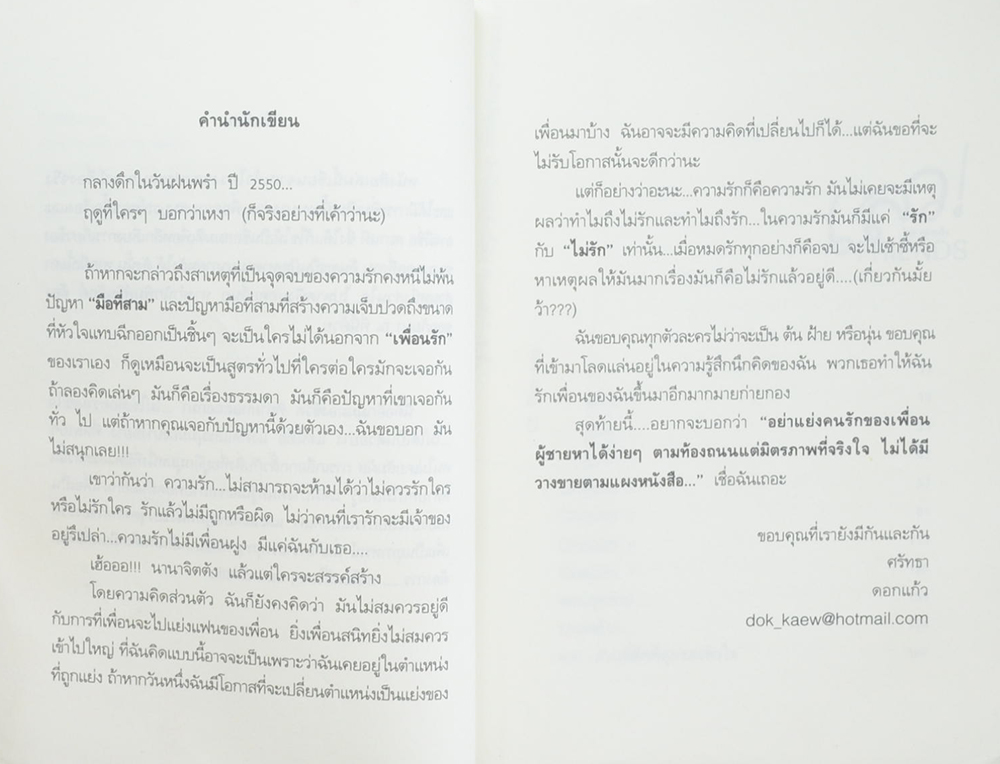 คำนำนักเขียน
กลางดึกในวันฝนพรำ ปี 2550...
ฤดูที่ใครๆ บอกว่าเหงา (ก็จริงอย่างที่เค้าว่านะ)
ถ้าหากจะกล่าวถึงสาเหตุที่เป็นจุดจบของความรักคงหนีไม่พ้น
ปัญหา “มือที่สาม” และปัญหามือที่สามที่สร้างความเจ็บปวดถึงขนาด
ที่หัวใจแทบฉีกออกเป็นชิ้นๆ จะเป็นใครไม่ได้นอกจาก “เพื่อนรัก”
ของเราเอง ก็ดูเหมือนจะเป็นสูตรทั่วไปที่ใครต่อใครมักจะเจอกัน
ถ้าลองคิดเล่นๆ มันก็คือเรื่องธรรมดา มันก็คือปัญหาที่เขาเจอกัน
ทั่ว ไป แต่ถ้าหากคุณเจอกับปัญหานี้ด้วยตัวเอง...ฉันขอบอก มัน
ไม่สนุกเลย!!!
เขาว่ากันว่า ความรัก...ไม่สามารถจะห้ามได้ว่าไม่ควรรักใคร
หรือไม่รักใคร รักแล้วไม่มีถูกหรือผิด ไม่ว่าคนที่เรารักจะมีเจ้าของ
อยู่รึเปล่า...ความรักไม่มีเพื่อนฝูง มีแค่ฉันกับเธอ....
เฮ้อออ!!! นานาจิตตัง แล้วแต่ใครจะสรรค์สร้าง
โดยความคิดส่วนตัว ฉันก็ยังคงคิดว่า มันไม่สมควรอยู่ดี
กับการที่เพื่อนจะไปแย่งแฟนของเพื่อน ยิ่งเพื่อนสนิทยิ่งไม่สมควร
เข้าไปใหญ่ ที่ฉันคิดแบบนี้อาจจะเป็นเพราะว่าฉันเคยอยู่ในตำแหน่ง
ที่ถูกแย่ง ถ้าหากวันหนึ่งฉันมีโอกาสที่จะเปลี่ยนตำแหน่งเป็นแย่งของ
เพื่อนมาบ้าง ฉันอาจจะมีความคิดที่เปลี่ยนไปก็ได้...แต่ฉันขอที่จะ
ไม่รับโอกาสนั้นจะดีกว่านะ
แต่ก็อย่างว่าอะนะ...ความรักก็คือความรัก มันไม่เคยจะมีเหตุ
ผลว่าทำไมถึงไม่รักและทำไมถึงรัก...ในความรักมันก็มีแค่ “รัก”
กับ “ไม่รัก” เท่านั้น...เมื่อหมดรักทุกอย่างก็คือจบ จะไปเซ้าซี้หรือ
หาเหตุผลให้มันมากเรื่องมันก็คือไม่รักแล้วอยู่ดี....(เกี่ยวกันมั้ย
ว้า???)
ฉันขอบคุณทุกตัวละครไม่ว่าจะเป็น ต้น ฝ้าย หรือนุ่น ขอบคุณ
ที่เข้ามาโลดแล่นอยู่ในความรู้สึกนึกคิดของฉัน พวกเธอทำให้ฉัน
รักเพื่อนของฉันขึ้นมาอีกมากมายก่ายกอง
สุดท้ายนี้....อยากจะบอกว่า “อย่าแย่งคนรักของเพื่อน
ผู้ชายหาได้ง่ายๆ ตามท้องถนนแต่มิตรภาพที่จริงใจ ไม่ได้มี
วางขายตามแผงหนังสือ...” เชื่อฉันเถอะ
ขอบคุณที่เรายังมีกันและกัน
ศรัทธา
ดอกแก้ว
dok_kaew@hotmail.com